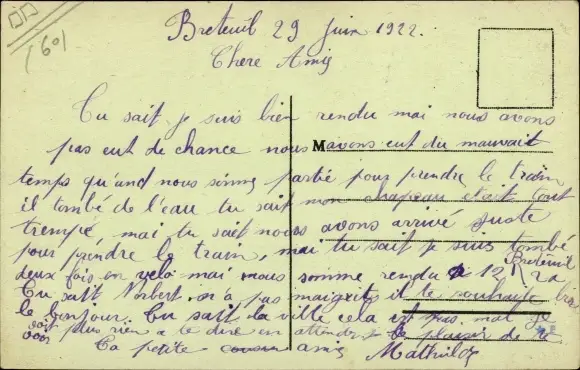 (60)
Breteuil 29 juin 1922.
Chere Amis
Tu sait je suis bien rendu mai nous avons
pas eut de chance nous avons eut du mauvait
M
temps qu'and nous somme partie pour prendre le train
il tombé de l'eau tu sait mon chapeau etait tout
trempé, mai tu sait nous avons arrivé juste
pour prendre le train, mai tu sait je suis tombé
deux fois en velo mai nous somme rendu a Breteuil 12 R
Tu sait Norbert n'a pas maigrit il te souhaite bien
le bonjour. Tu sait la ville cela est pas mal je
voit plus rien a te dire en attendent le plaisir de te
voir
Ta petite amis Mathilde